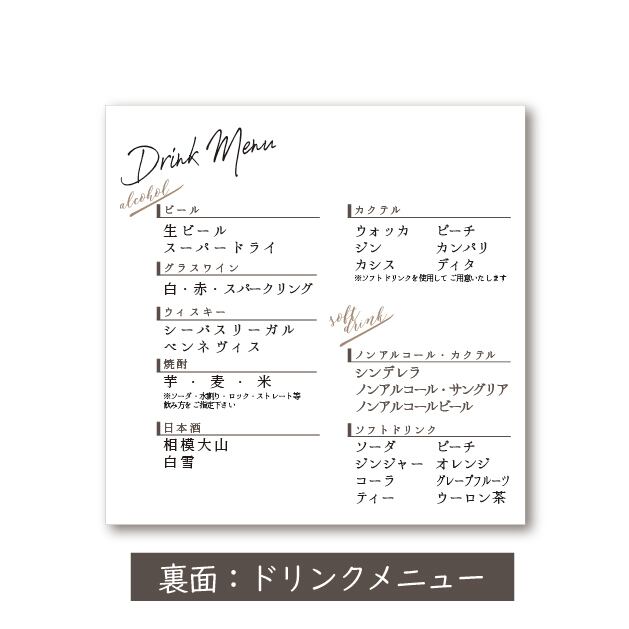 Drink Menu
alcohol
ビール
生ビール
スーパードライ
グラスワイン
白・赤・スパークリング
ウィスキー
シーバスリーガル
ベンネヴィス
焼酎
芋・麦・米
※ソーダ・水割り・ロック・ストレート等
飲み方をご指定下さい
日本酒
相模大山
白雪
カクテル
ウォッカ ピーチ
ジン カンパリ
カシス ディタ
※ソフトドリンクを使用してご用意いたします
soft
drink
ノンアルコール・カクテル
シンデレラ
ノンアルコール・サングリア
ノンアルコールビール
ソフトドリンク
ソーダ ピーチ
ジンジャー オレンジ
コーラ グレープフルーツ
ティー ウーロン茶
裏面：ドリンクメニュー